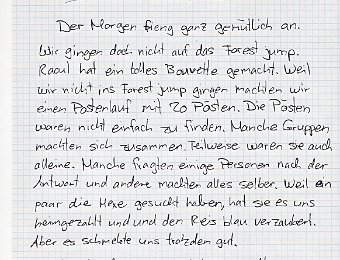 Der Morgen fieng ganz gemütlich an.
Wir gingen doch nicht auf das Forest jump.
Raoul hat ein tolles Bouvette gemacht. Weil
wir nicht ins Forest jump gingen machten wir
einen Postenlauf mit 20 Pösten. Die Pösten
waren nicht einfach zu finden. Manche Gruppen
machten sich zusammen. Teilweise waren sie auch
alleine. Manche fragten einige Personen nach der
Antwort und andere machten alles selber. Weil ein
paar die Hexe gesucht haben, hat sie es uns
heimgezahlt und und den Reis blau verzaubert.
Aber es schmekte uns trotzden gut.